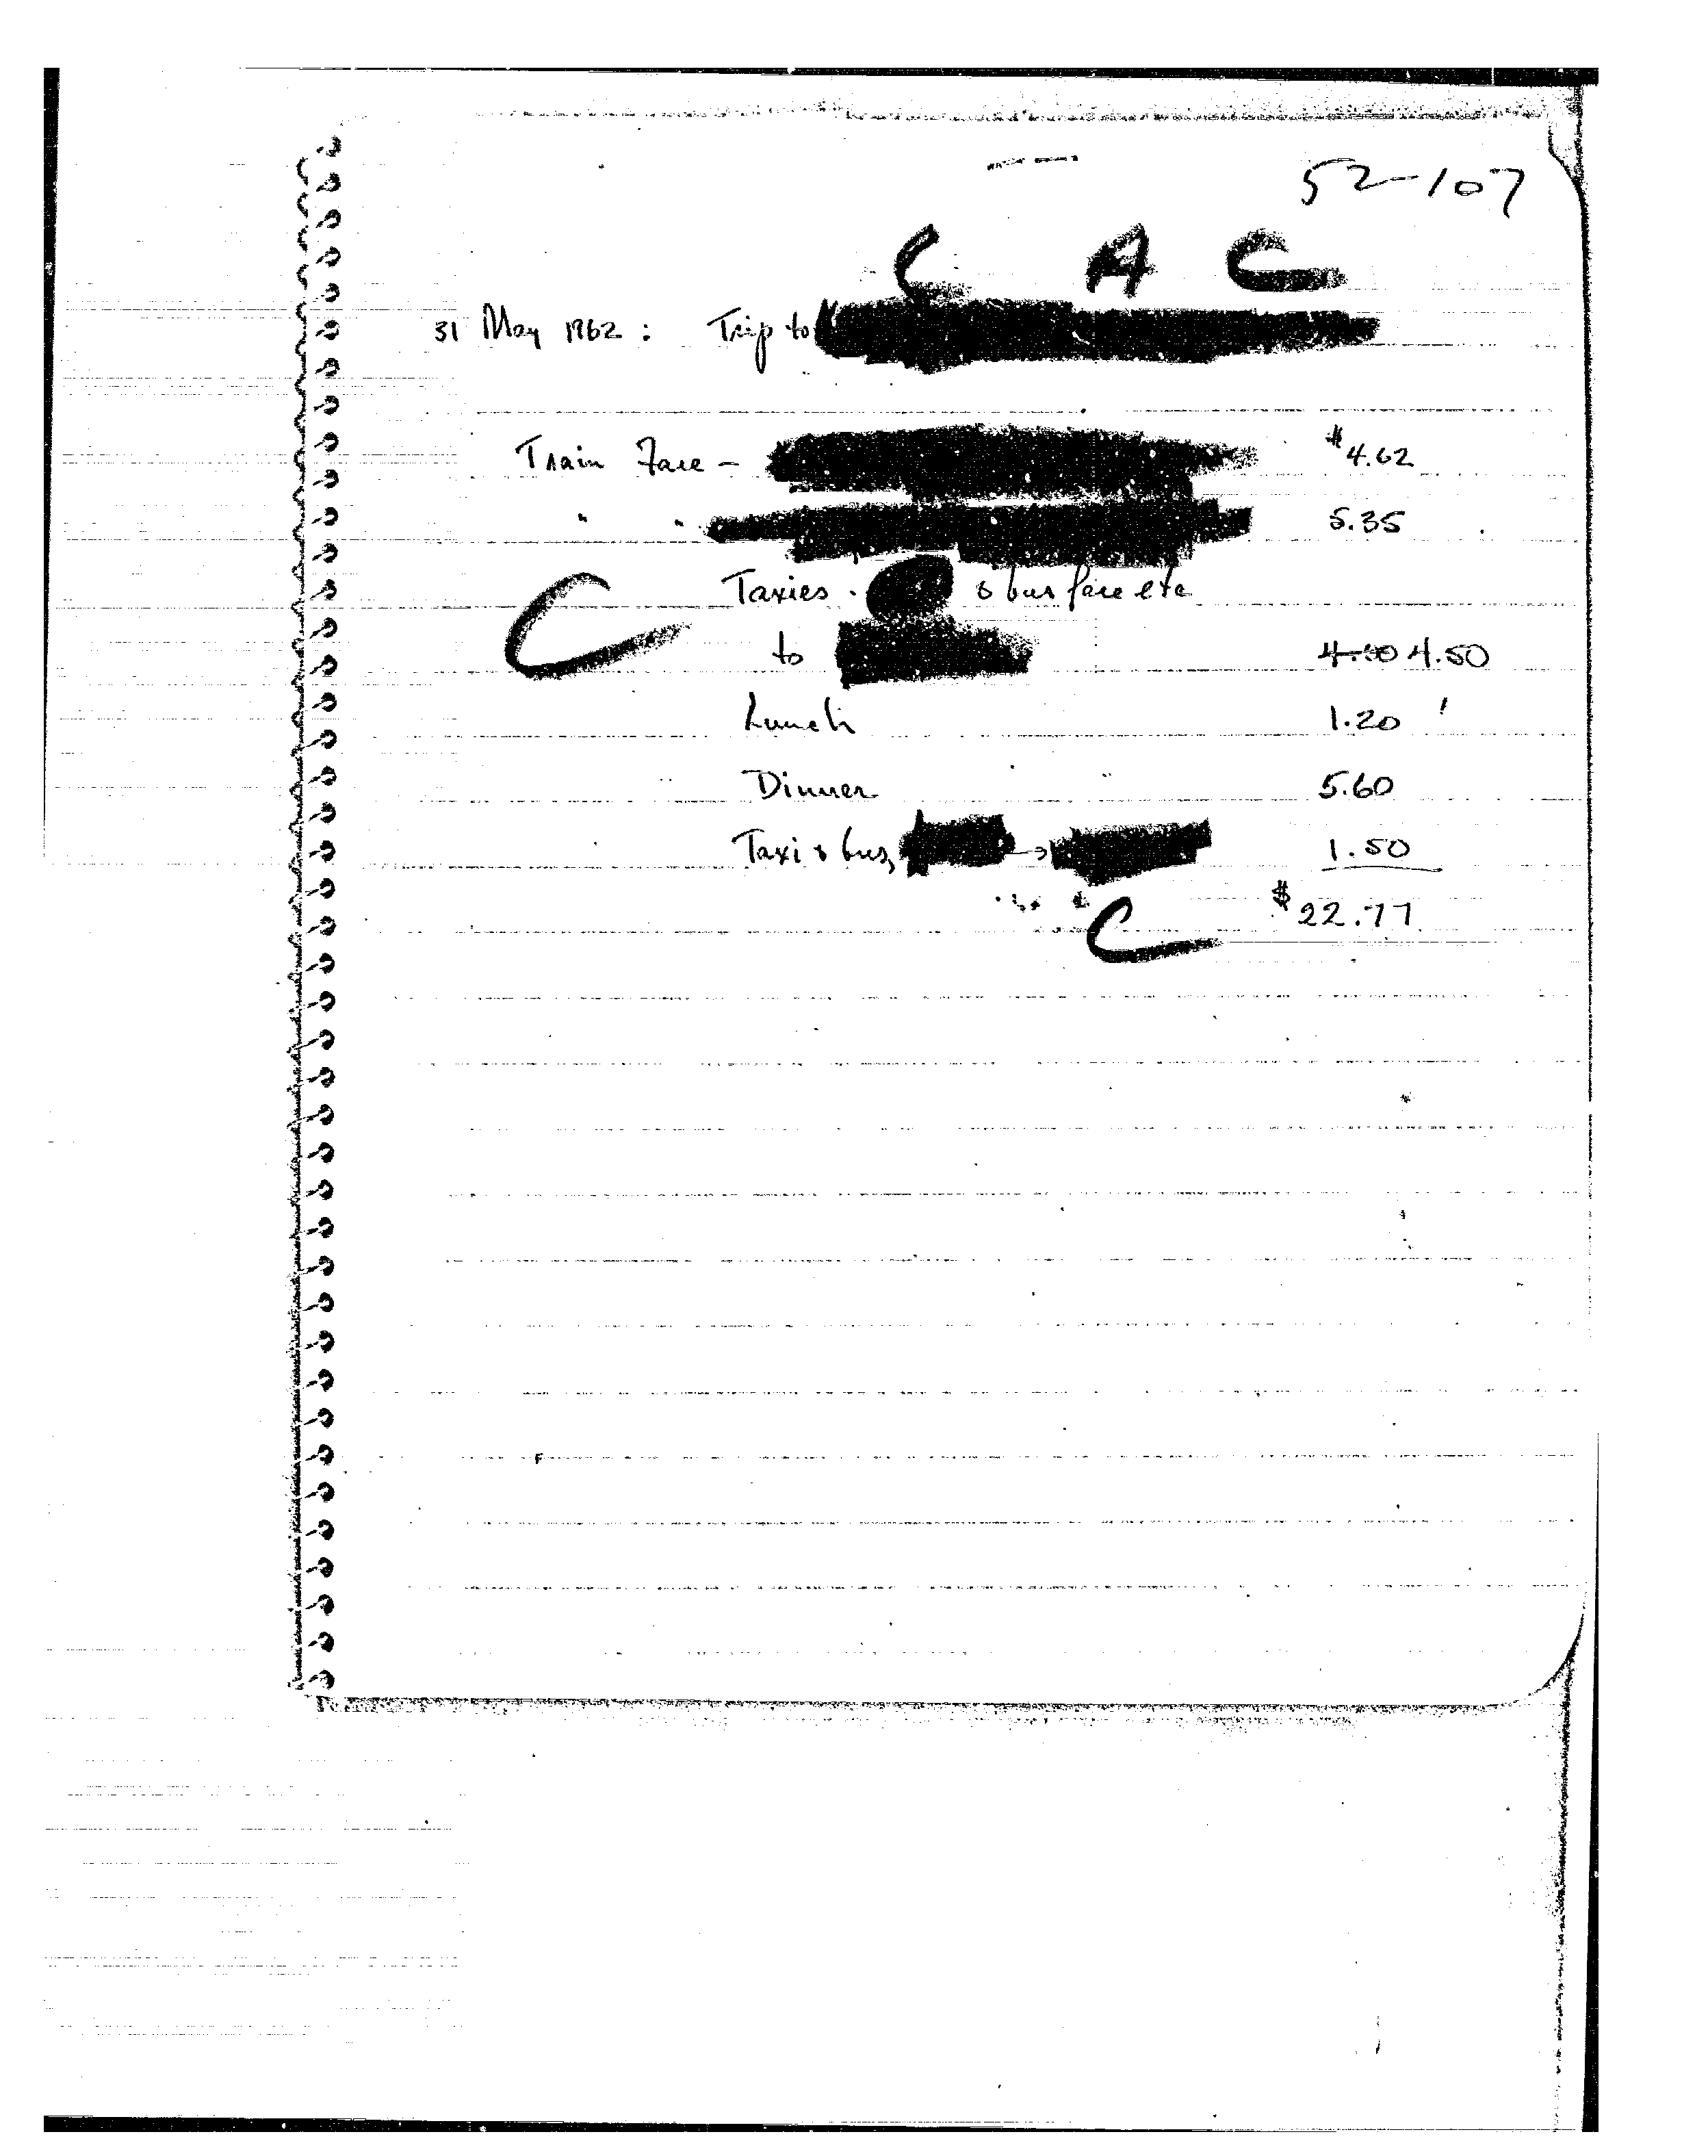 52-107
C A C
31 May 1962 : Trip to
Train Fare - $4.62
" " 5.35
Taxies . & bus fare etc
C to 4.50
Lunch 1.20
Dinner 5.60
Taxi & bus, → 1.50
C $22.77